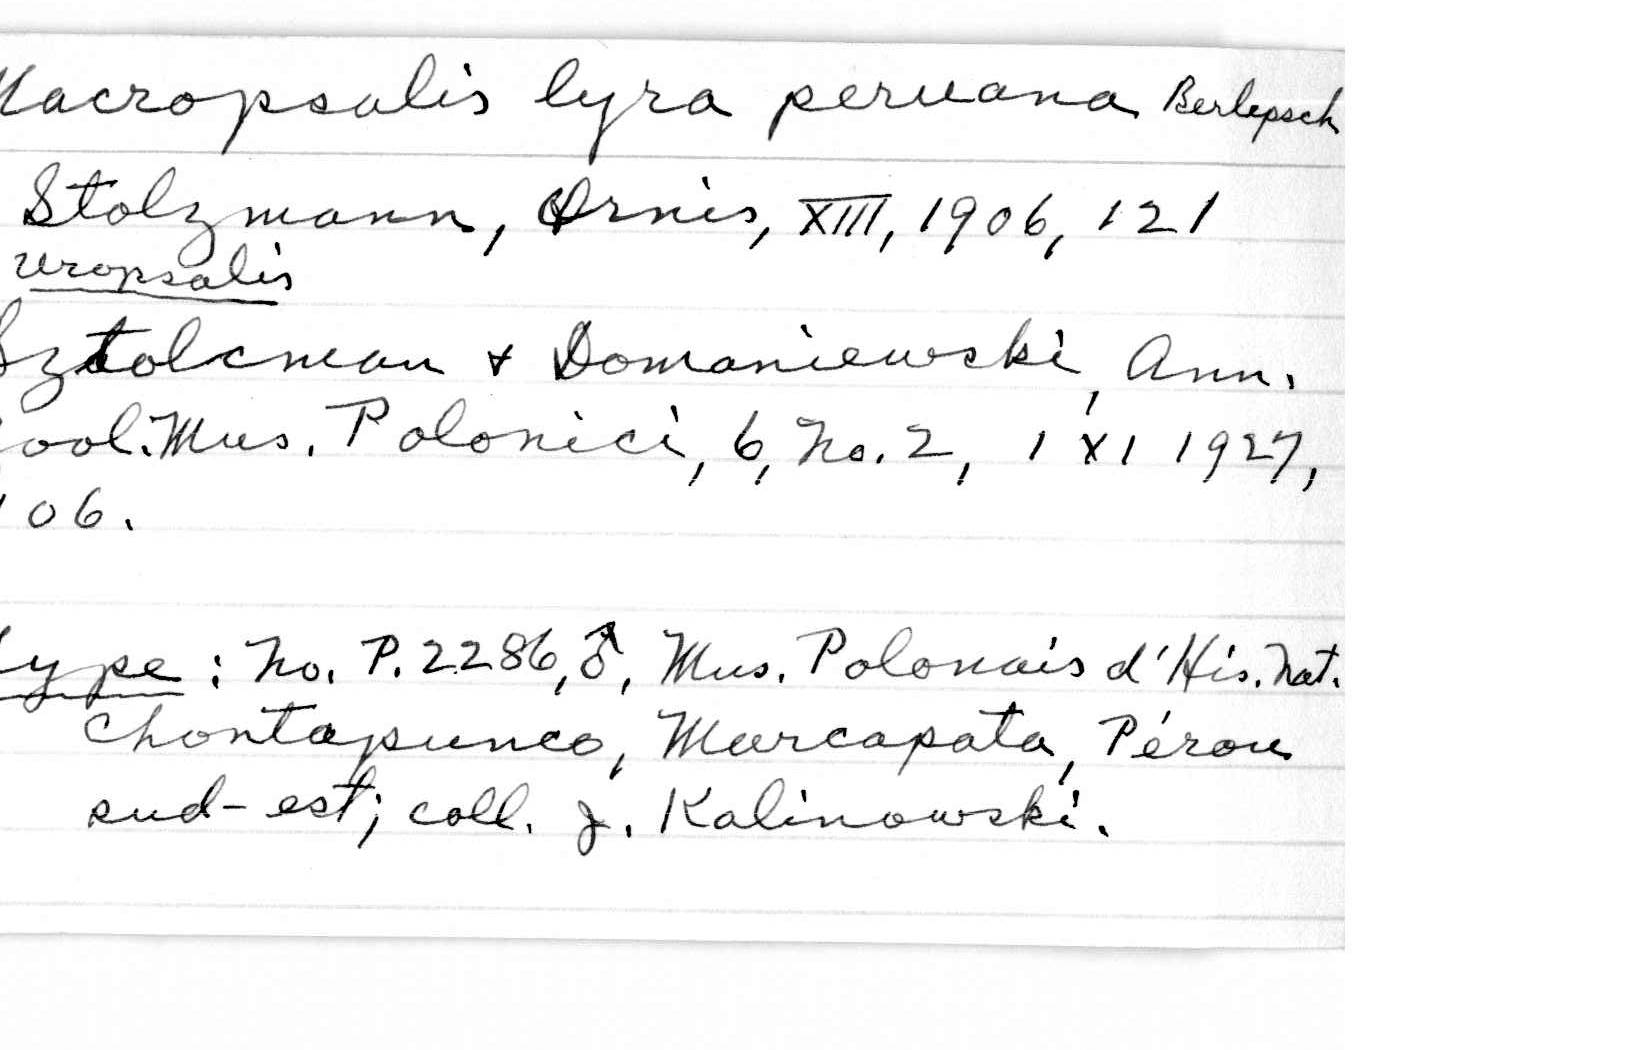 Macropsalis lyra peruana Berlepsch
Stolzmann, Ornis, XIII, 1906, 121
uropsalis
Sztolcman & Domaniewski, Ann.
ool. Mus. Polonici, 6, No. 2, 1 XI 1927,
106.
type: No. P. 2286, ♂, Mus. Polonais d'His. Nat.
Chontapunco, Marcapata, Pérou
sud-est; coll. J. Kalinowski.